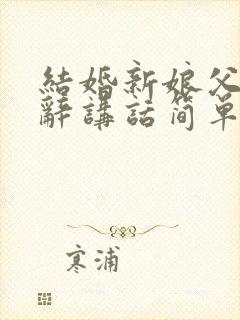 結婚新娘父
辭講話简单
寒浦